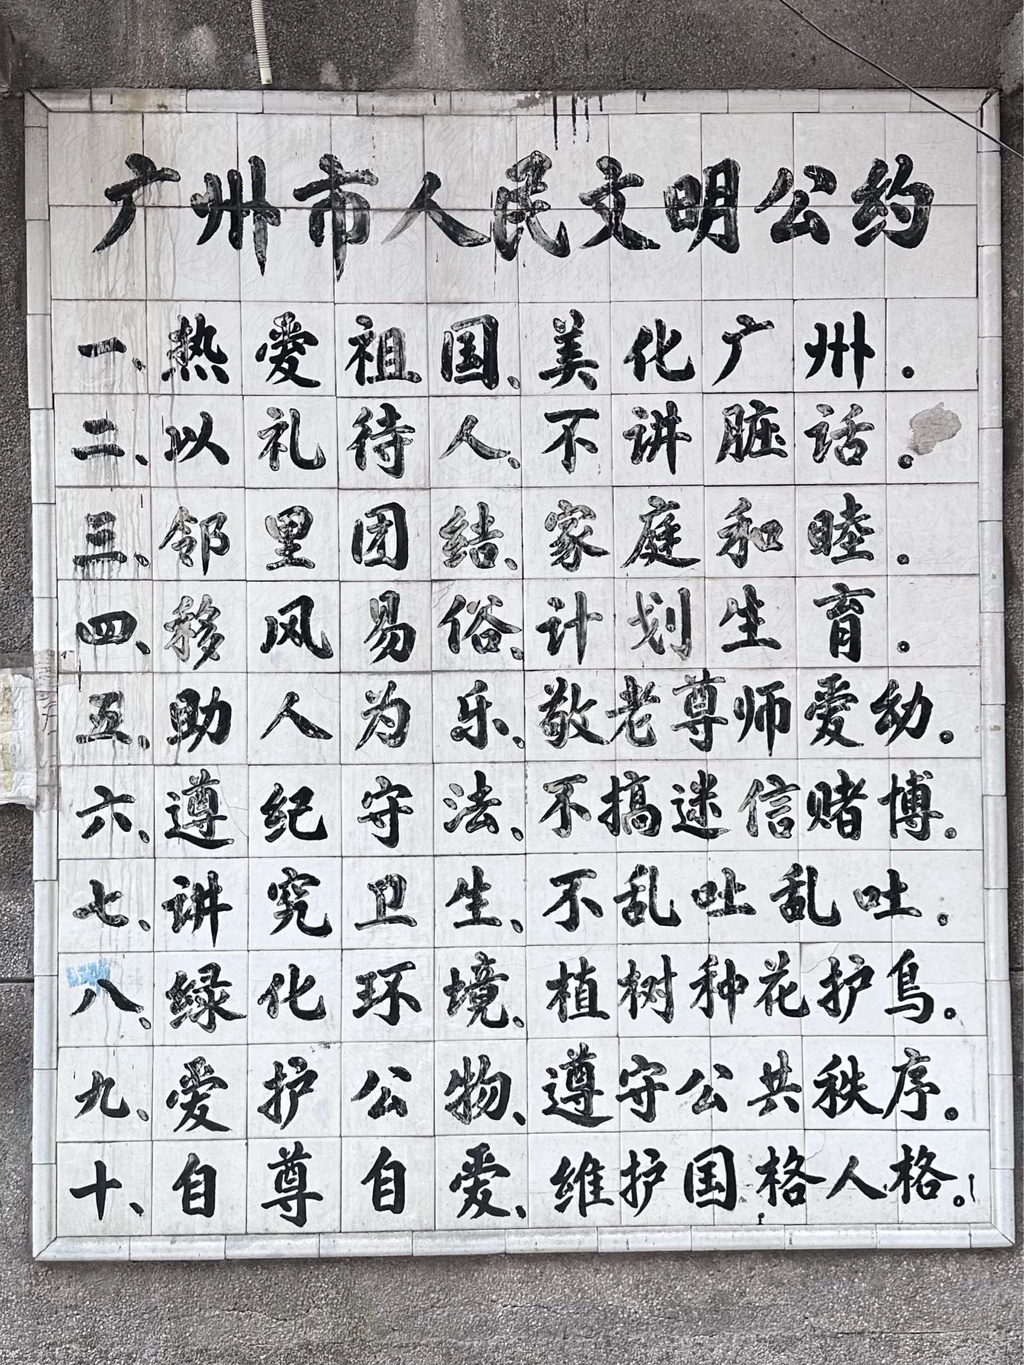 广州市人民文明公约
一、热爱祖国、美化广州。
二、以礼待人、不讲脏话。
三、邻里团结、家庭和睦。
四、移风易俗、计划生育。
五、助人为乐、敬老尊师爱幼。
六、遵纪守法、不搞迷信赌博。
七、讲究卫生、不乱吐乱吐。
八、绿化环境、植树种花护鸟。
九、爱护公物、遵守公共秩序。
十、自尊自爱、维护国格人格。